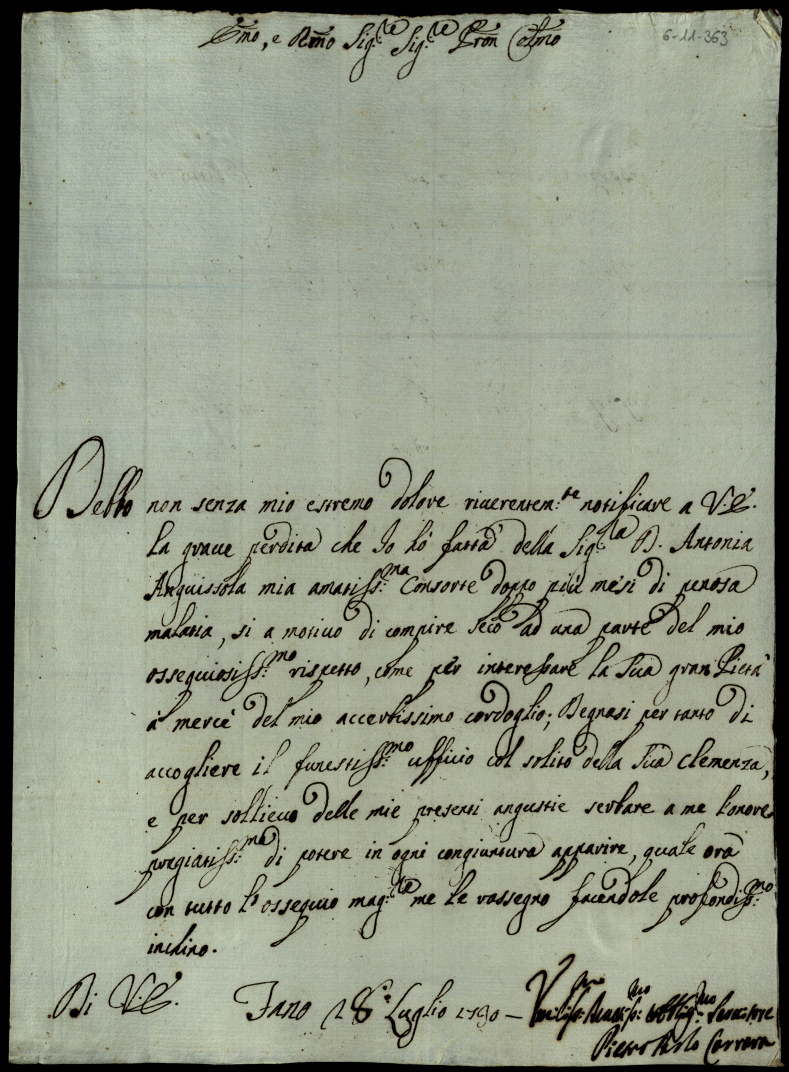 Emo, e Rmo Sig.re Sig.re Pron Colmo
6-11-363
Debbo non senza mio estremo dolore riuerentem:te notificare a V.E.
la graue perdita che Io hò fatta della Sig.ra D. Antonia
Anguissola mia amatiss:ma Consorte doppo più mesi di penosa
malatia, si a motiuo di compire seco ad una parte del mio
ossequiosiss:mo rispetto, come per interessare la Sua gran Pietà
à mercè del mio accerbissimo cordoglio; Degnasi per tanto di
accogliere il funestiss:mo ufficio col solito della Sua Clemenza,
e per sollieuo delle mie presenti angustie serbare a me l'onore
pregiatiss:mo di potere in ogni congiuntura apparire, quale ora
con tutto l'ossequio mag:re me le rassegno facendole profondiss:mo
inchino.
Di V.E. Fano 28 Luglio 1730 – Vmiliss:mo Deuotiss:mo obblig:mo Seruitore
Pietro Carlo Carrara